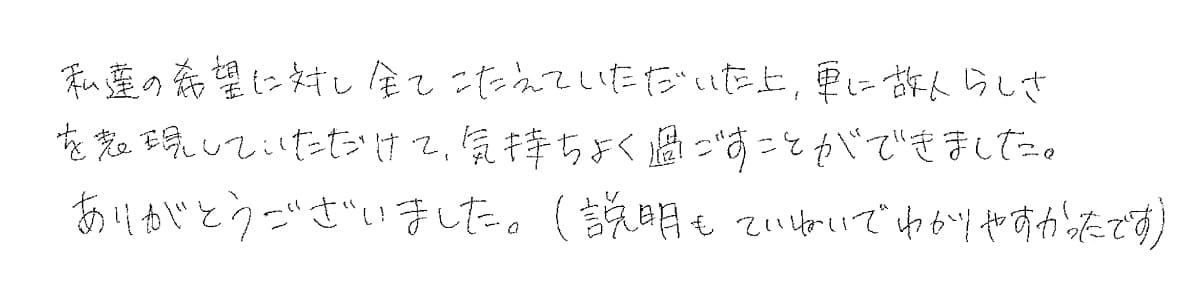 私達の希望に対し全てこたえていただいた上、更に故人らしさ
を表現していただけて、気持ちよく過ごすことができました。
ありがとうございました。(説明もていねいでわかりやすかったです)